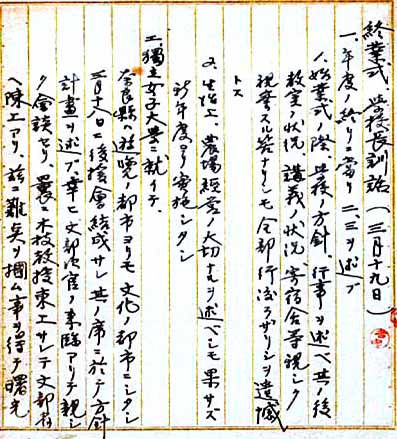 終業式、学校長訓話(三月十九日)
一、年度ノ終リニ當リ二、三ヲ述ブ
1、始業式ノ際、学校ノ方針、行事ヲ述ベ其ノ後
教室ノ状況 講義ノ状況 寄宿舎等親シク
視察スル筈ナリシモ全部行渡ラザリシヲ遺憾
トス
2、生活上、農場経営ノ大切ナルヲ述ベシモ果サズ
新年度ヨリ実施シタシ
工、獨立女子大学ニ就イテ、
奈良縣ハ遊覧ノ都市ヨリモ文化ノ都市ニシタシ
三月十八日ニ後援會結成サレ其ノ席ニ於テ方針
計畫ヲ述ブ、幸ヒ文部次官ノ来臨アリテ親シ
ク會談セリ、曩ニ木枝教授東上サレテ文部省
ヘ陳上アリ、茲ニ難矣ヲ摑ム事ヲ得テ曙光